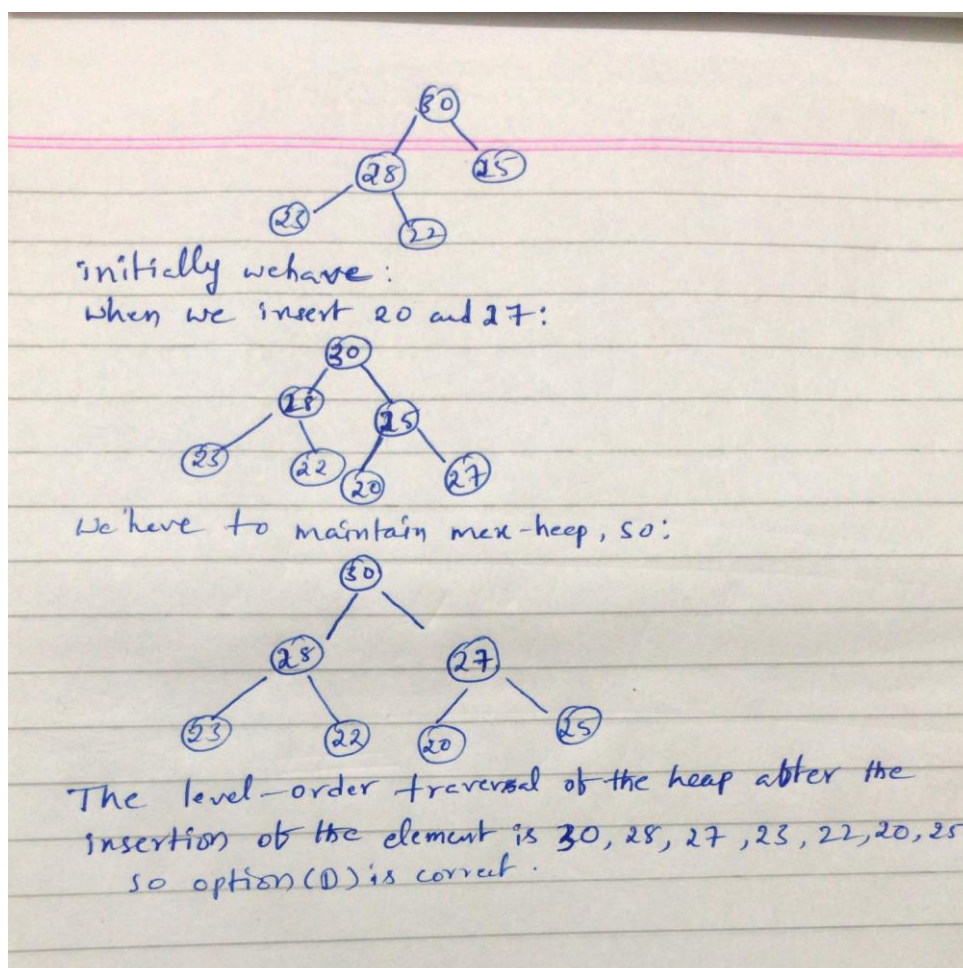 30
28 25
23 22
initially wehave:
when we insert 20 and 27:
30
28 25
23 22 20 27
We have to maintain mex-heep, so:
30
28 27
23 22 20 25
The level-order traversal of the heap abter the
insertion ob the element is 30, 28, 27, 23, 22, 20, 25
so option (D) is correct.